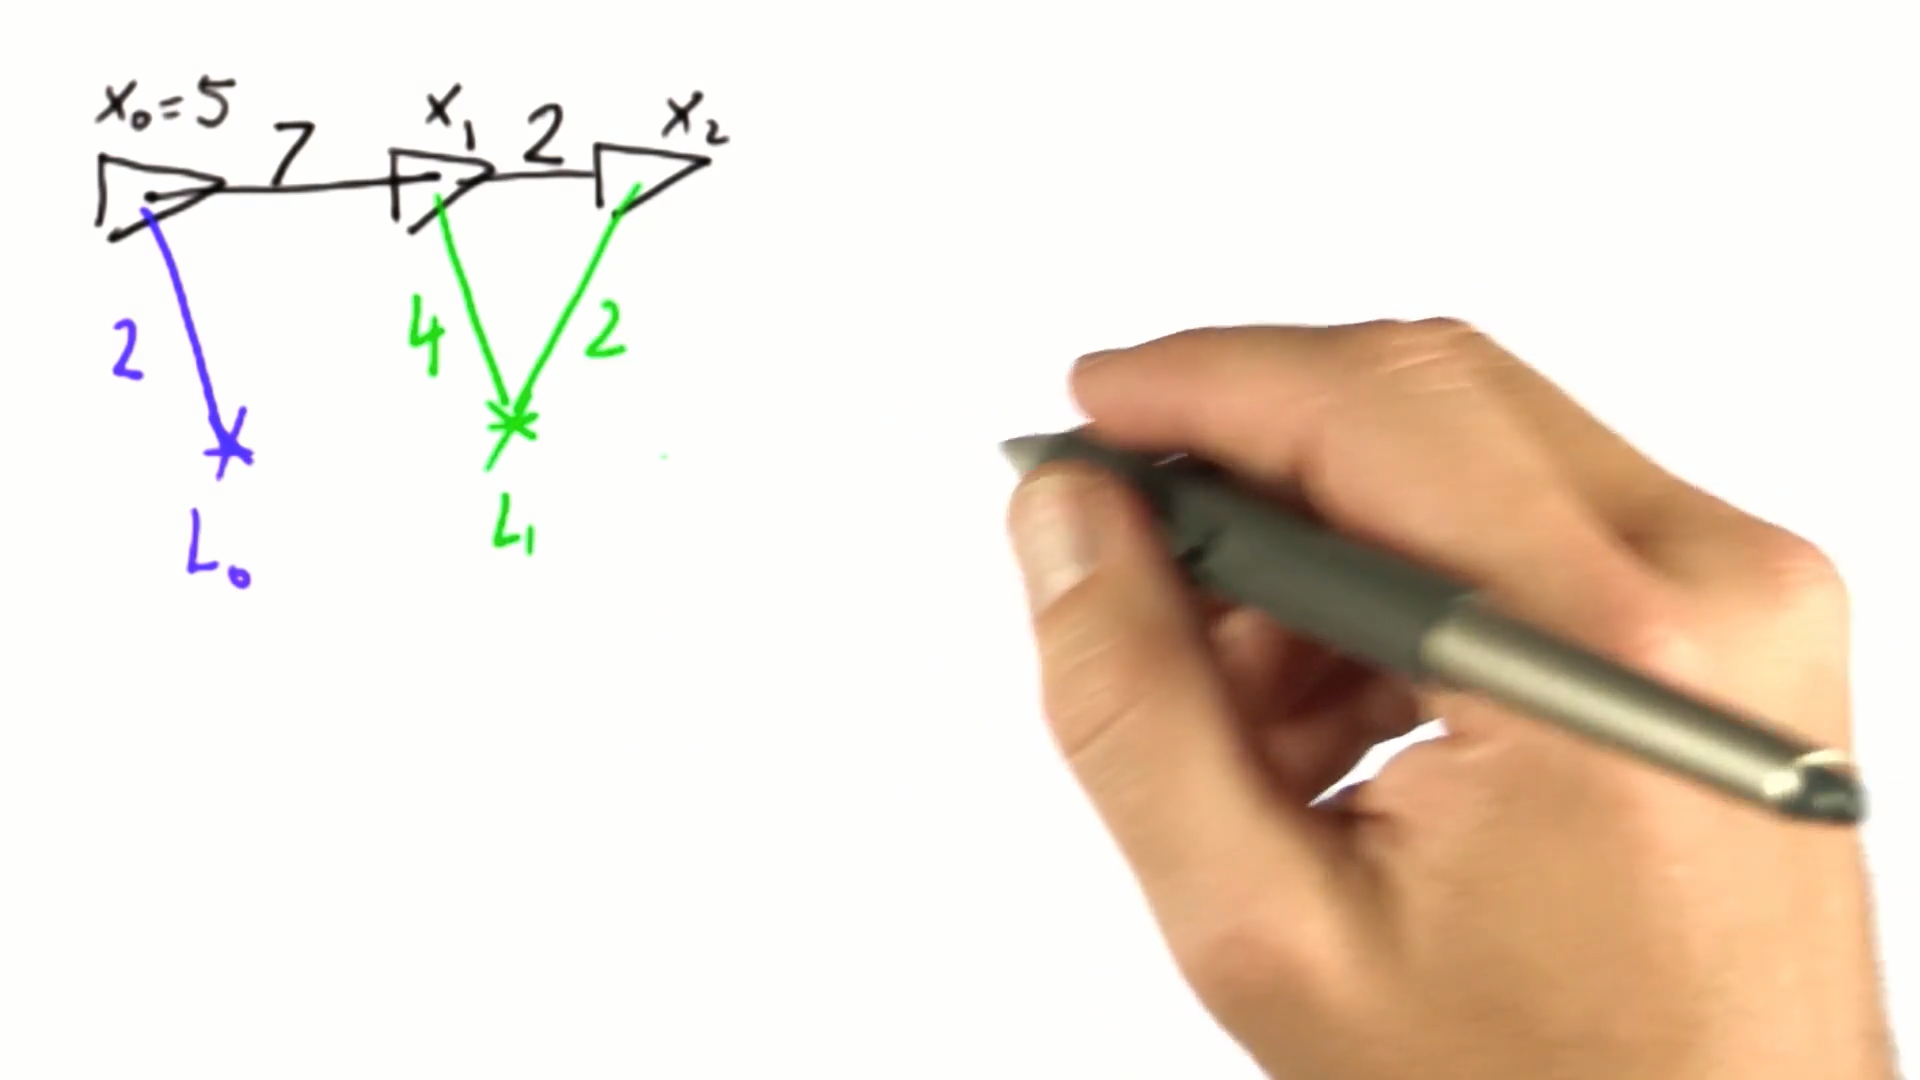 x₀=5
7
x₁
2
x₂
2
4
2
L₀
L₁